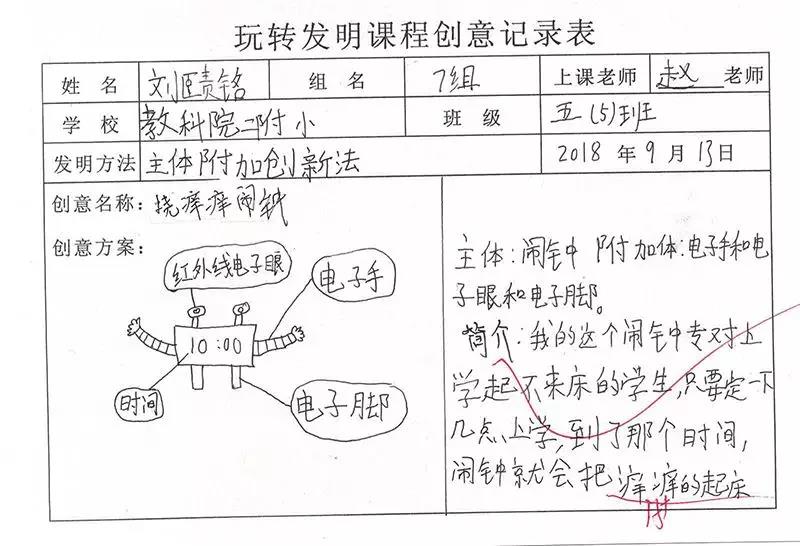 玩转发明课程创意记录表
姓名 刘赜铭 组名 7组 上课老师 赵 老师
学校 教科院二附小 班级 五(5)班
发明方法 主体附加创新法 2018 年 9 月 13 日
创意名称：挠痒痒闹钟
创意方案：
红外线电子眼
电子手
10:00
时间
电子脚
主体：闹钟 附加体：电子手和电
子眼和电子脚。
简介：我的这个闹钟专对上
学起不来床的学生，只要定一下
几点上学，到了那个时间，
闹钟就会把痒痒的起床